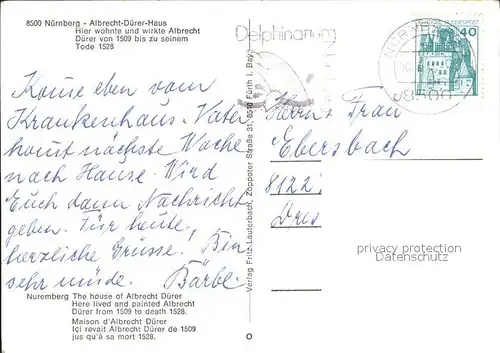 8500 Nürnberg - Albrecht-Dürer-Haus
Hier wohnte und wirkte Albrecht
Dürer von 1509 bis zu seinem
Tode 1528
Delphinarium
NÜRNBERG
8500
BUNDESPOST
40
Komme eben vom
Krankenhaus. Vater
komt nächste Woche
nach Hause. Wird
Euch dann Nachricht
geben. Für heute,
herzliche Grüsse. Bin
sehr müde. Bärbel
Verlag Fritz Lauterbach, Zoppoter Straße 31, 8510 Fürth i. Bay.
Herrn + Frau
Ebersbach
8122
Dres
privacy protection
Datenschutz
Nuremberg The house of Albrecht Dürer
Here lived and painted Albrecht
Dürer from 1509 to death 1528.
Maison d'Albrecht Dürer
Içi revait Albrecht Dürer de 1509
jus qu'à sa mort 1528.